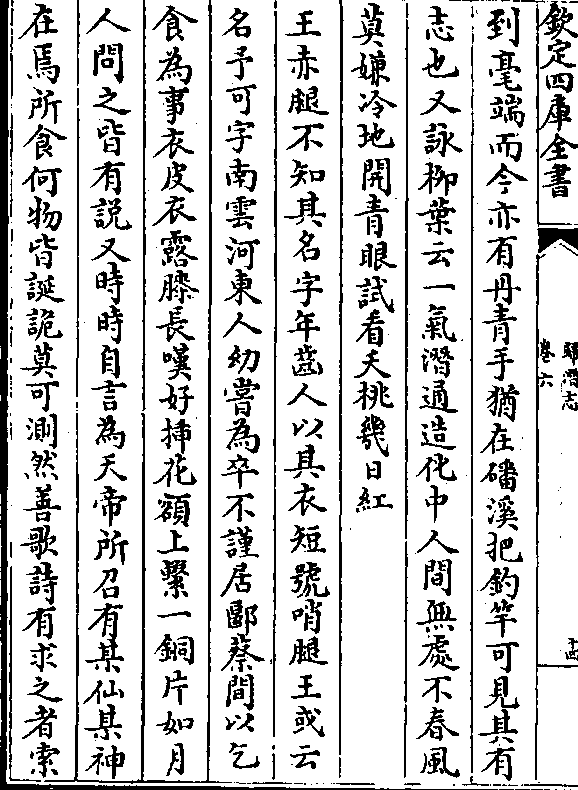 欽定四庫全書
歸潛志
卷六
十四
到毫端而今亦有丹青手猶在磻溪把釣竿可見其有
志也又詠柳葉云一氣潛通造化中人間無處不春風
莫嫌冷地開青眼試看夭桃幾日紅
王赤腿不知其名字年齒人以其衣短號哨腿王或云
名予可字南雲河東人幼嘗為卒不謹居郾蔡間以乞
食為事衣皮衣露膝長嘆好揷花額上繫一銅片如月
人問之皆有説又時時自言為天帝所召有某仙某神
在焉所食何物皆誕詭莫可測然善歌詩有求之者索